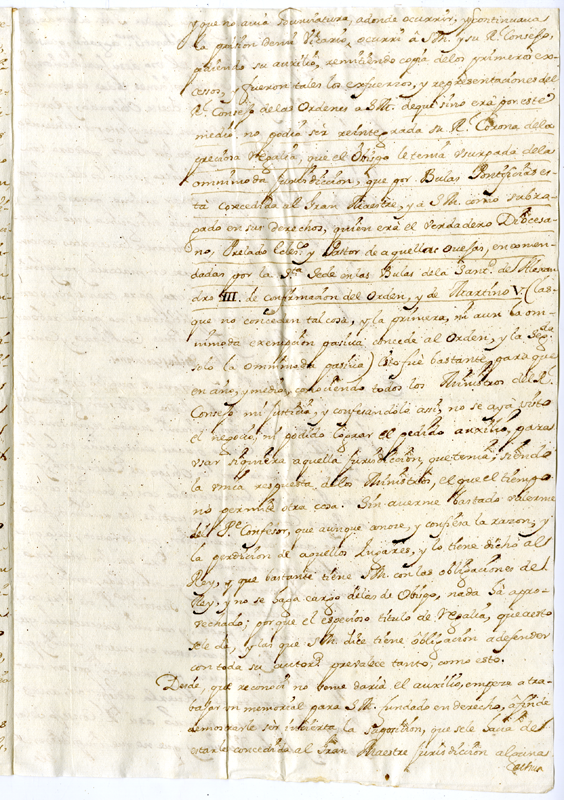 y que no avia Nunciatura, adonde ocurrir, y continuava
la prision demi Vicario, ocurri à S.M. y su Rl. Consejo,
pidiendo su auxilio, remitiendo copia delos primeros ex-
cesos, y fueron tales los esfuerzos, y representaciones del
Rl. Consejo delas Ordenes a S.M. de que sino era por este
medio, no podia ser reintegrada su Rl. Corona dela
preciosa Regalia, que el Obispo le tenia usurpada dela
omnimoda jurisdiccion, que por Bulas Pontificias es-
tà concedida al Gran Maestre, y à S.M. como subro-
gado en sus derechos, quien era el Verdadero Dioçesa-
no, Prelado Ecless. y Pastor de aquellas Ovejas, encomen-
dadas por la Sta. Sede en las Bulas dela Santd. de Alexan-
dro III. de Confirmacion del Orden, y de Martino V. (las
que no conceden tal cosa, y la primera, ni aun la om-
nimoda exempcion pasiva concede al Orden, y la segda.
solo la omnimoda pasiva) Esto fuè bastante, para que
en año, y medio, conociendo todos los Ministros del Rl.
Consejo mi justicia, y confesandolo asi, no se aya visto
el negocio, ni podido lograr el pedido auxilio, para
usar siquiera aquella jurisdiccion, que tenia; siendo
la unica respuesta delos Ministros, el que el tiempo
no permite otra cosa. Sin averme bastado valerme
del Pe. Confesor, que aunque conoze, y confiesa la razon, y
la perdicion de aquellos Lugares, y lo tiene dicho al
Rey, y que bastante tiene S.M. con las obligaciones de
Rey, y no se haga cargo delas de Obispo, nada hà apro-
vechado; porque el especioso titulo de Regalia, que aesto
sele dà, y las que S.M. dice tiene obligacion adefender
con toda su autord. prevalece tanto, como esto.
Desde, que reconoci no seme daria el auxilio, empeze a tra-
bajar mi memorial para S.M. fundado en derecho, afin de
demostrarle ser incierta la suposicion, que sele hacia de
estar concedida al Gran Maestre jurisdiccion alguna